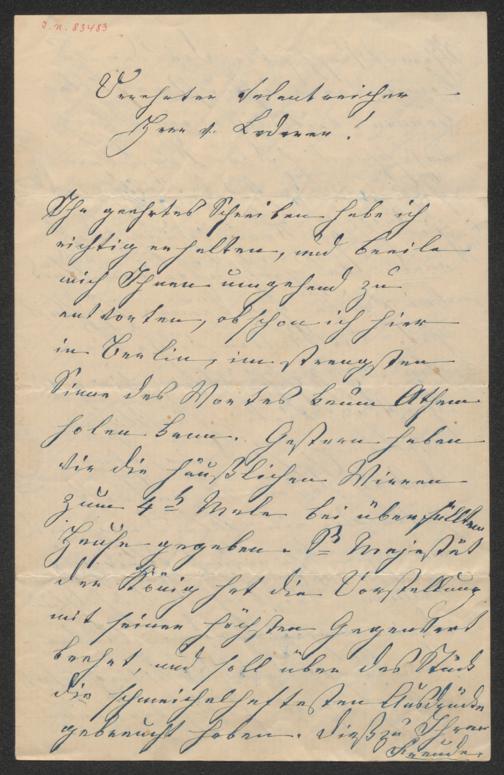 I. N. 83483
Verehrter talentreicher
Herr v. Lederer!
Ihr geehrtes Schreiben habe ich
richtig erhalten, und beeile
mich Ihnen umgehend zu
antworten, obschon ich hier
in Berlin, im strengsten
Sinne des Wortes kaum Athem
holen kann. Gestern haben
wir die häußlichen Wirren
zum 4t Male bei überfülltem
Hause gegeben. Sr Majestät
der König hat die Vorstellung
mit seiner höchsten Gegenwart
beehrt, und soll über das Stück
die schmeichelhaftesten Ausdrücke
gebraucht haben. Dieß zu Ihrer
Freude.